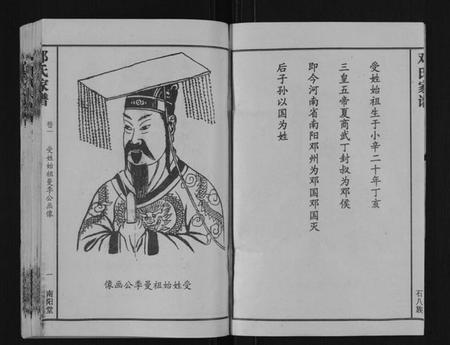 邓氏家谱
受姓始祖生于小辛二十年丁亥
三皇五帝夏商武丁封叔为邓侯
即今河南省南阳邓州为邓国邓国灭
后子孙以国为姓
石八族
邓氏家谱
卷一
受姓始祖曼季公画像
一
南阳堂
像画公季曼祖始姓受